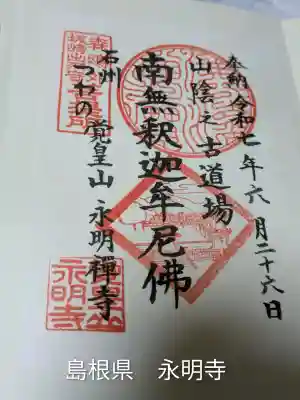 奉納 令和七年六月二十六日
山陰之古道場
南無釈迦牟尼佛
石州
つわの 覚皇山 永明禅寺
永明寺
島根県 永明寺